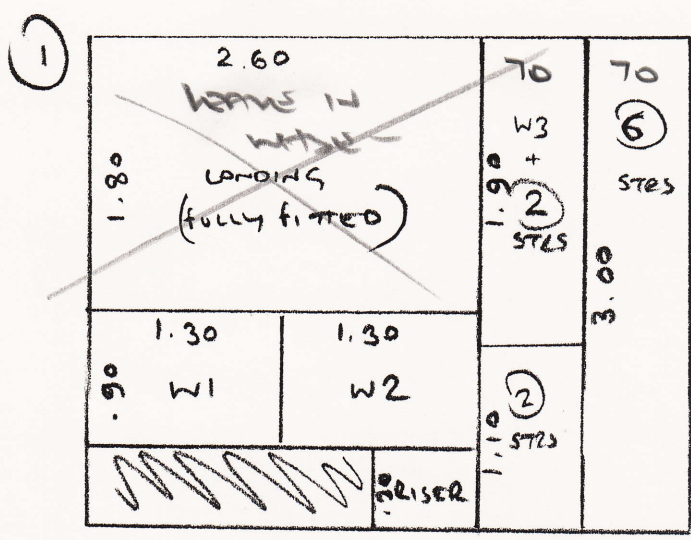 1
2.60
LEAVE IN
WHOLE
1.80
LANDING
(FULLY FITTED)
70
W3
+
2
STRS
1.90
70
6
STRS
3.00
1.30
W1
.90
1.30
W2
2
STRS
1.10
.30
RISER